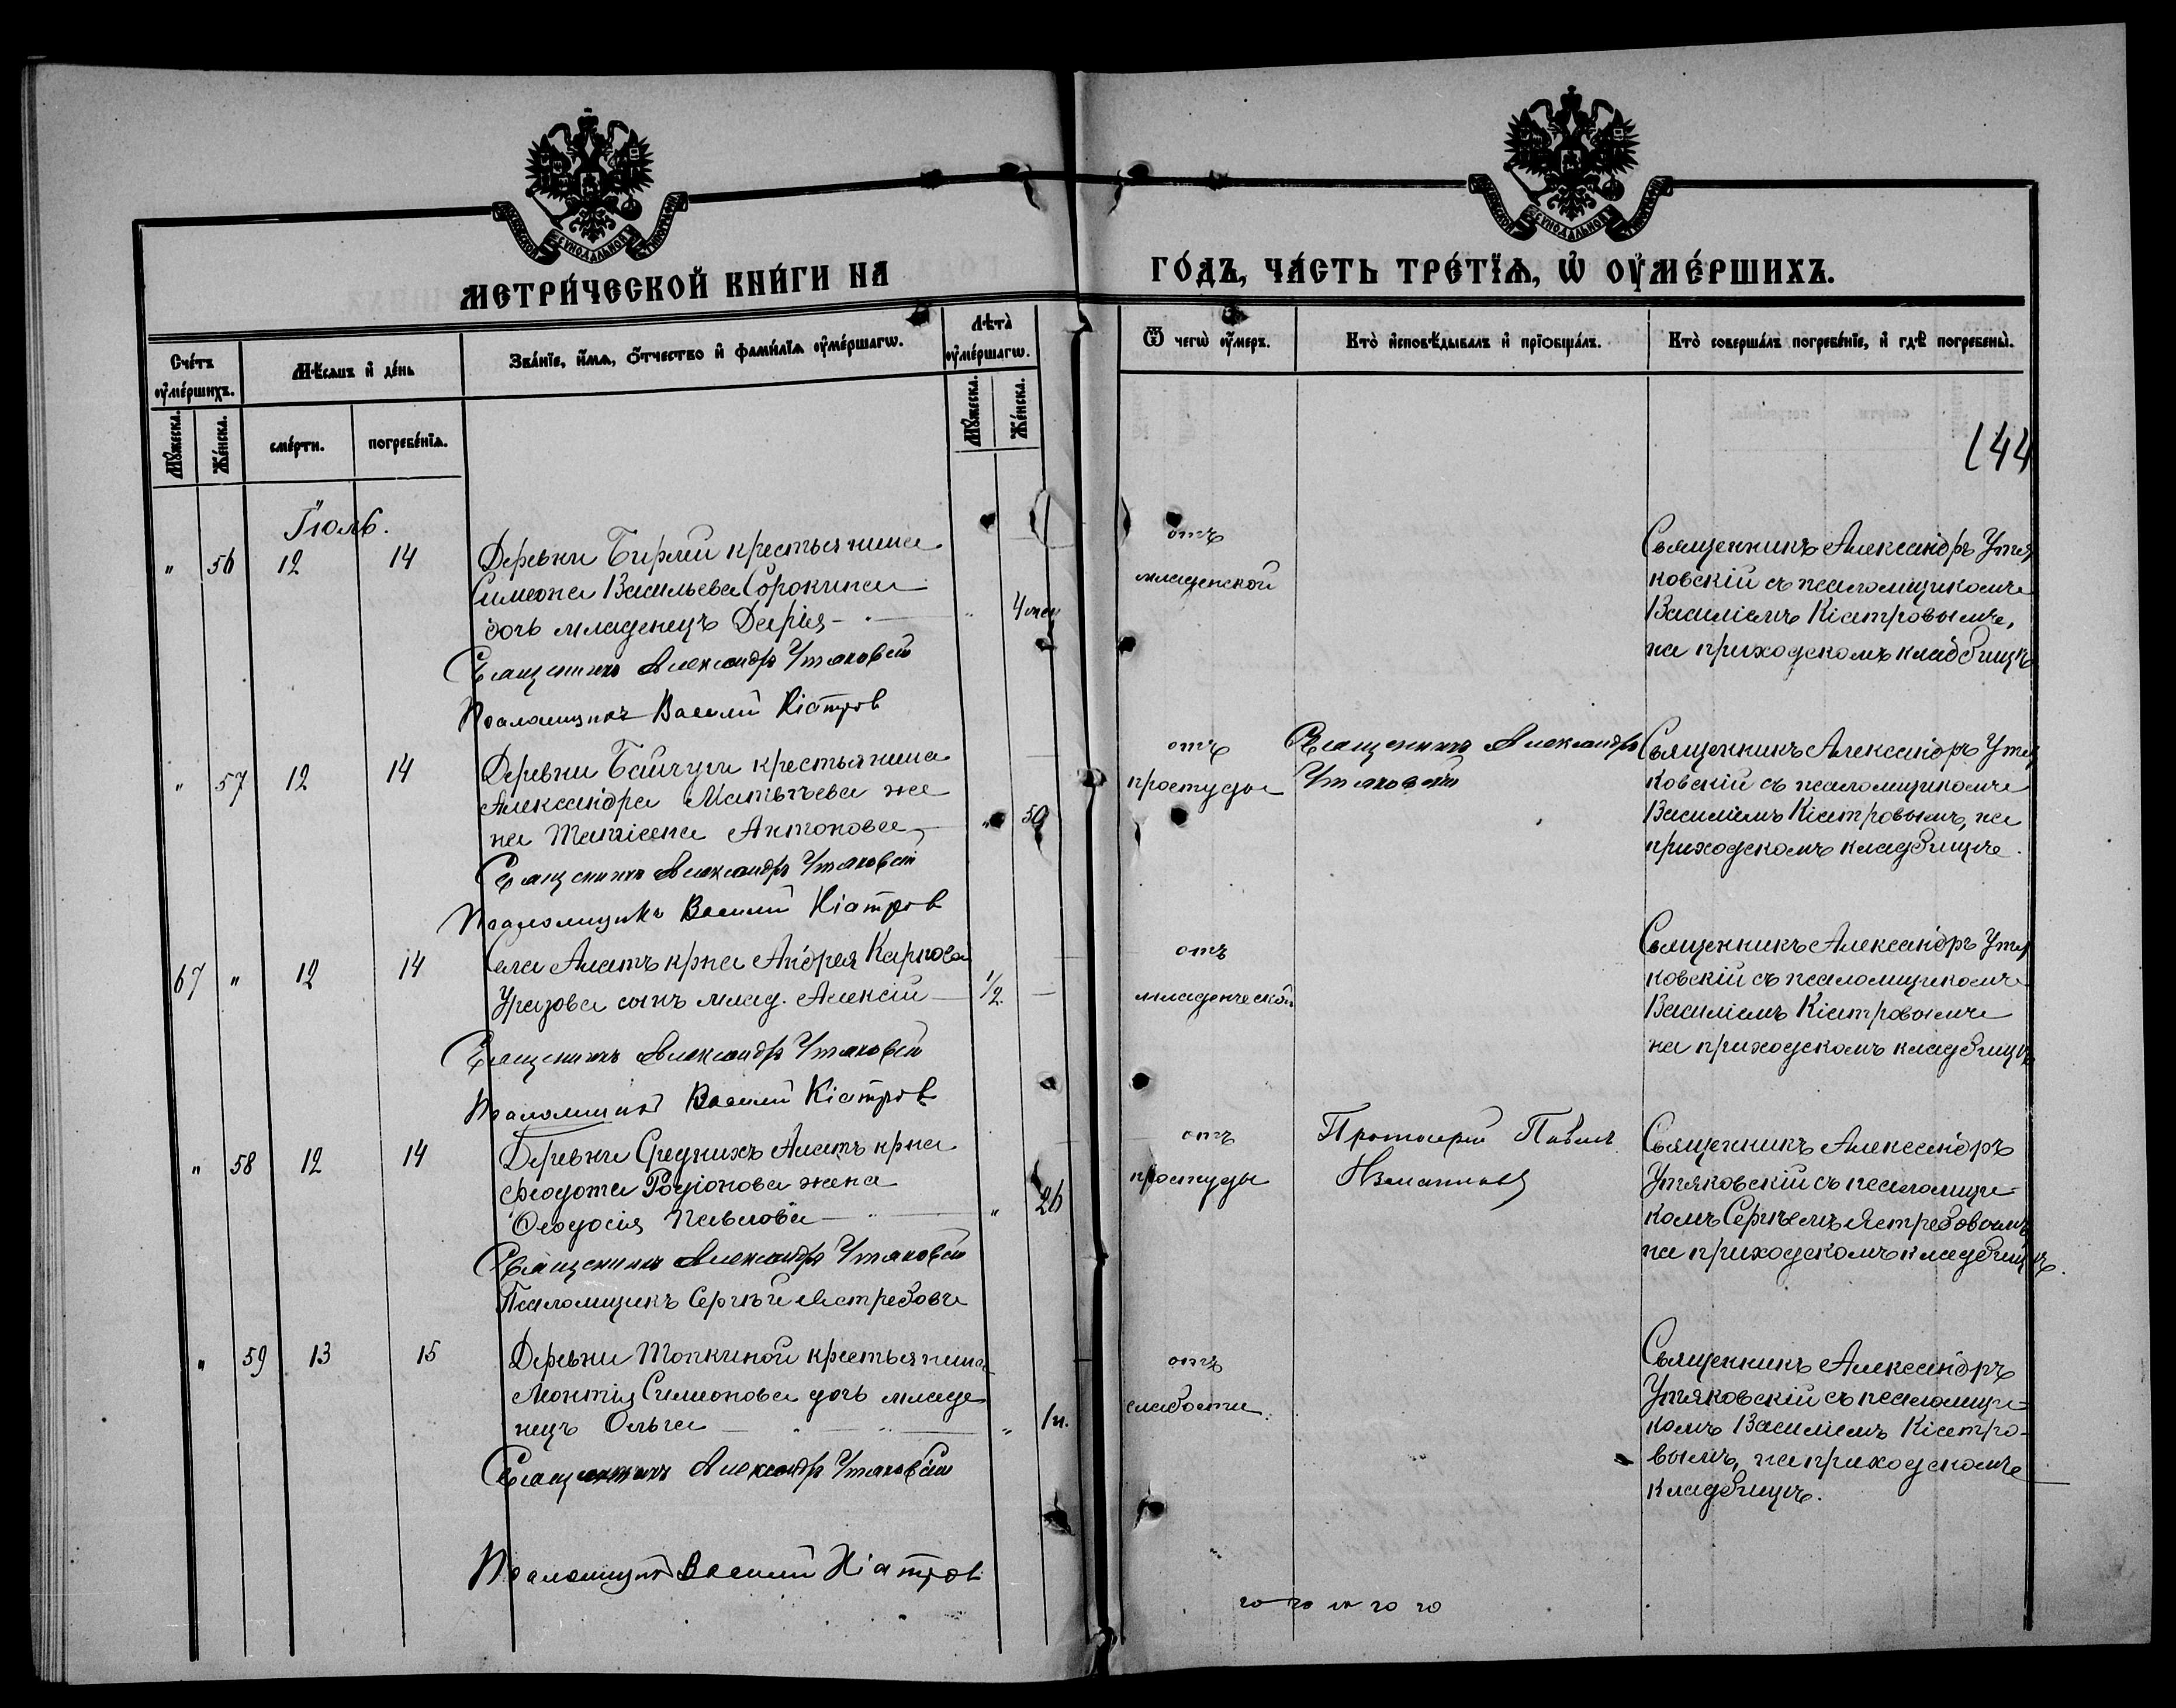 МЕТРИ́ЧЕСКОЙ КНИ́ГИ НА ГО́ДЪ, ЧА́СТЬ ТРЕ́ТЇѦ, Ѡ҆ ОУ҆МЕ́РШИХЪ.
Сче́тъ оу҆ме́ршихъ.
Мѣ́сѧцъ и҆ де́нь
Зва́нїе, и҆́мѧ, ѻ҆́тчество и҆ фами́лїѧ оу҆ме́ршагѡ.
Лѣта̀ оу҆ме́ршагѡ.
Ѿ чегѡ̀ оу҆́меръ.
Кто̀ и҆сповѣ́дывалъ и҆ прїѡбща́лъ.
Кто̀ соверша́лъ погребе́нїе, и҆ гдѣ̀ погребены̀.
Мꙋ́жеска.
Же́нска.
сме́рти.
погребе́нїѧ.
Мꙋ́жеска.
Же́нска.
144
Іюль.
" 56 12 14
Деревни Бирли крестьянина
Симеона Васильева Сорокина
дочь младенецъ Дарія - " 4 мѣс
Священникъ Александръ Утяковскій
Псаломщикъ Василій Кіатров
отъ
младенской
Священникъ Александръ Утя
ковскій съ псаломщикомъ
Василіемъ Кіатровымъ,
на приходскомъ кладбищѣ
" 57 12 14
Деревни Байчуги крестьянина
Александра Матвѣева же
на Татіана Антонова - " 50
Священникъ Александръ Утяковскій
Псаломщикъ Василій Кіатров
отъ
простуды
Священникъ Александръ
Утяковскій
Священникъ Александръ Утя
ковскій съ псаломщикомъ
Василіемъ Кіатровымъ, на
приходскомъ кладбищѣ.
67 " 12 14
Села Алатъ крна Андрея Карпова
Уразова сынъ млад. Алексій - 1/2. -
Священникъ Александръ Утяковскій
Псаломщикъ Василій Кіатров
отъ
младенческой
Священникъ Александръ Утя
ковскій съ псаломщикомъ
Василіемъ Кіатровымъ
на приходскомъ кладбищѣ
" 58 12 14
Деревни Среднихъ Алатъ крна
Ѳеодота Родіонова жена
Ѳеодосія Павлова - " 26
Священникъ Александръ Утяковскій
Псаломщикъ Сергѣй Ястребовъ
отъ
простуды
Протоіерей Павелъ
Священникъ Александръ
Утяковскій съ псаломщи-
комъ Сергѣемъ Ястребовымъ,
на приходскомъ кладбищѣ.
" 59 13 15
Деревни Топкиной крестьянина
Леонтія Симеонова дочь младе
нецъ Ольга - " 1 н.
Священникъ Александръ Утяковскій
Псаломщикъ Василій Кіатров
отъ
слабости.
Священникъ Александръ
Утяковскій съ псаломщи-
комъ Василіемъ Кіатро-
вымъ, на приходскомъ
кладбищѣ.